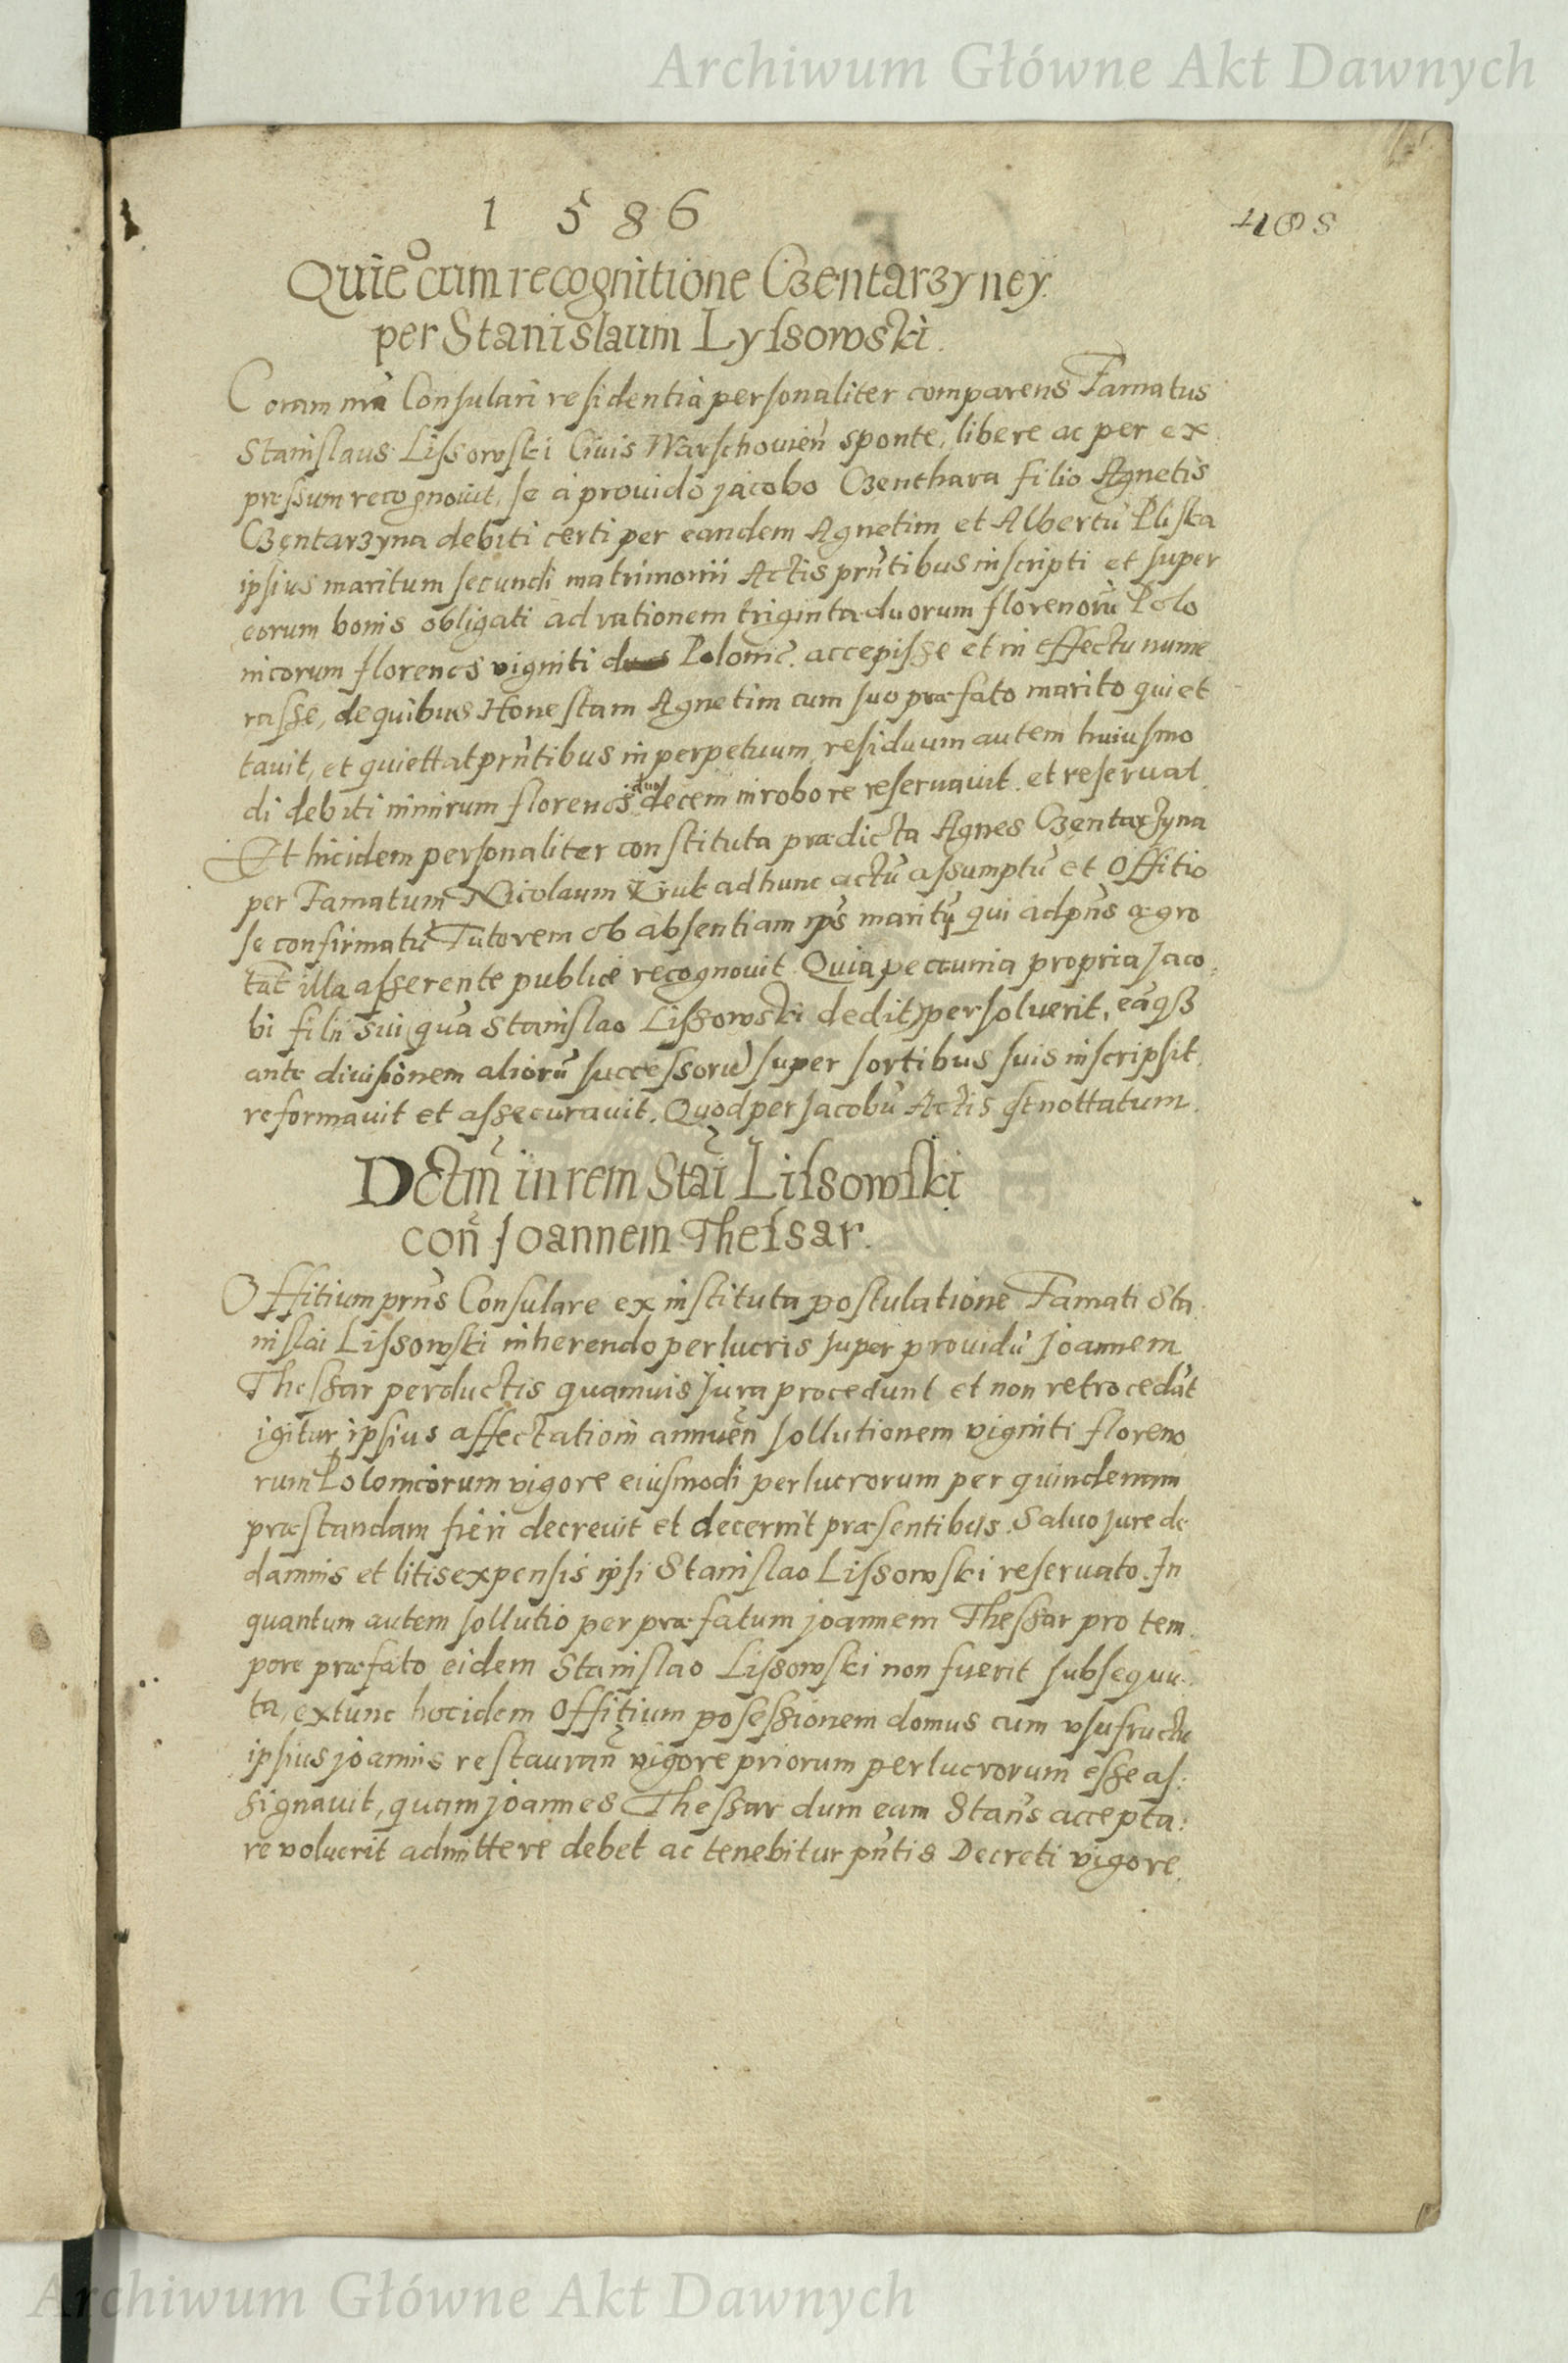 Archiwum Główne Akt Dawnych
1 5 8 6
408
Quieᵒ cum recognitione Czentarzyney
per Stanislaum Lyssowski.
Coram nrã Consulari residentia personaliter comparens Famatus
Stanislaus Lissowski Ciuis Warschouień sponte, libere ac per ex
pressum recognouit, se à prouido jacobo Czenthara filio Agnetis
Czentarzyna debiti certi per eandem Agnetim et Albertũ Plista
ipsius maritum secundi matrimonii Actis prñtibus inscripti et super
eorum bonis obligati ad rationem triginta duorum florenorũ Polo
nicorum florenos viginti Polonic. accepisse et in effectu nume
rasse, de quibus Honestam Agnetim cum suo præfato marito quiet
tauit, et quiettat prñtibus in perpetuum, residuum autem huiusmo
di debiti nimirum florenos duodecem in robore reseruauit et reseruat.
Et hicidem personaliter constituta prædicta Agnes Czentarzyna
per Famatum Nicolaum ad hunc actũ assumptũ et Offitio
se confirmatũ Tutorem ob absentiam ips maritų qui ad pñs ægro
tat illa asserente publicè recognouit. Quia peccunia propria Jaco:
bi filii sui (qua Stanislao Lissowski dedit) persoluerit, eãqß
ante diuisionem aliorũ successorũ super sortibus suis inscripsit
reformauit et assecurauit. Quod per Jacobũ Actis est nottatum.
Dctm̃ in rem Stãi Lissowski
coñ Joannem Thessar.
Offitium prñs Consulare ex instituta postulatione Famati Sta
nislai Lissowski inherendo perlucris super prouidũ Joannem
Thessar perductis quamuis Jura procedunt et non retrocedũt
igitur ipsius affectationi annueñ sollutionem viginti floreno
rum Polonicorum vigore eiusmodi perlucrorum per quindenam
præstandam fieri decreuit et decernit præsentibus. Saluo jure de
damnis et litis expensis ipsi Stanislao Lissowski reseruato. In
quantum autem sollutio per præfatum joannem Thessar pro tem
pore præfato eidem Stanislao Lissowski non fuerit subsequu:
ta, extunc hocidem Offitium posessionem domus cum vsufructu
ipsius joannis restaurañ vigore priorum perlucrorum esse as:
signauit, quam joannes Thessar dum eam Stañs accepta:
re voluerit admittere debet ac tenebitur pñtis Decreti vigore.
Archiwum Główne Akt Dawnych